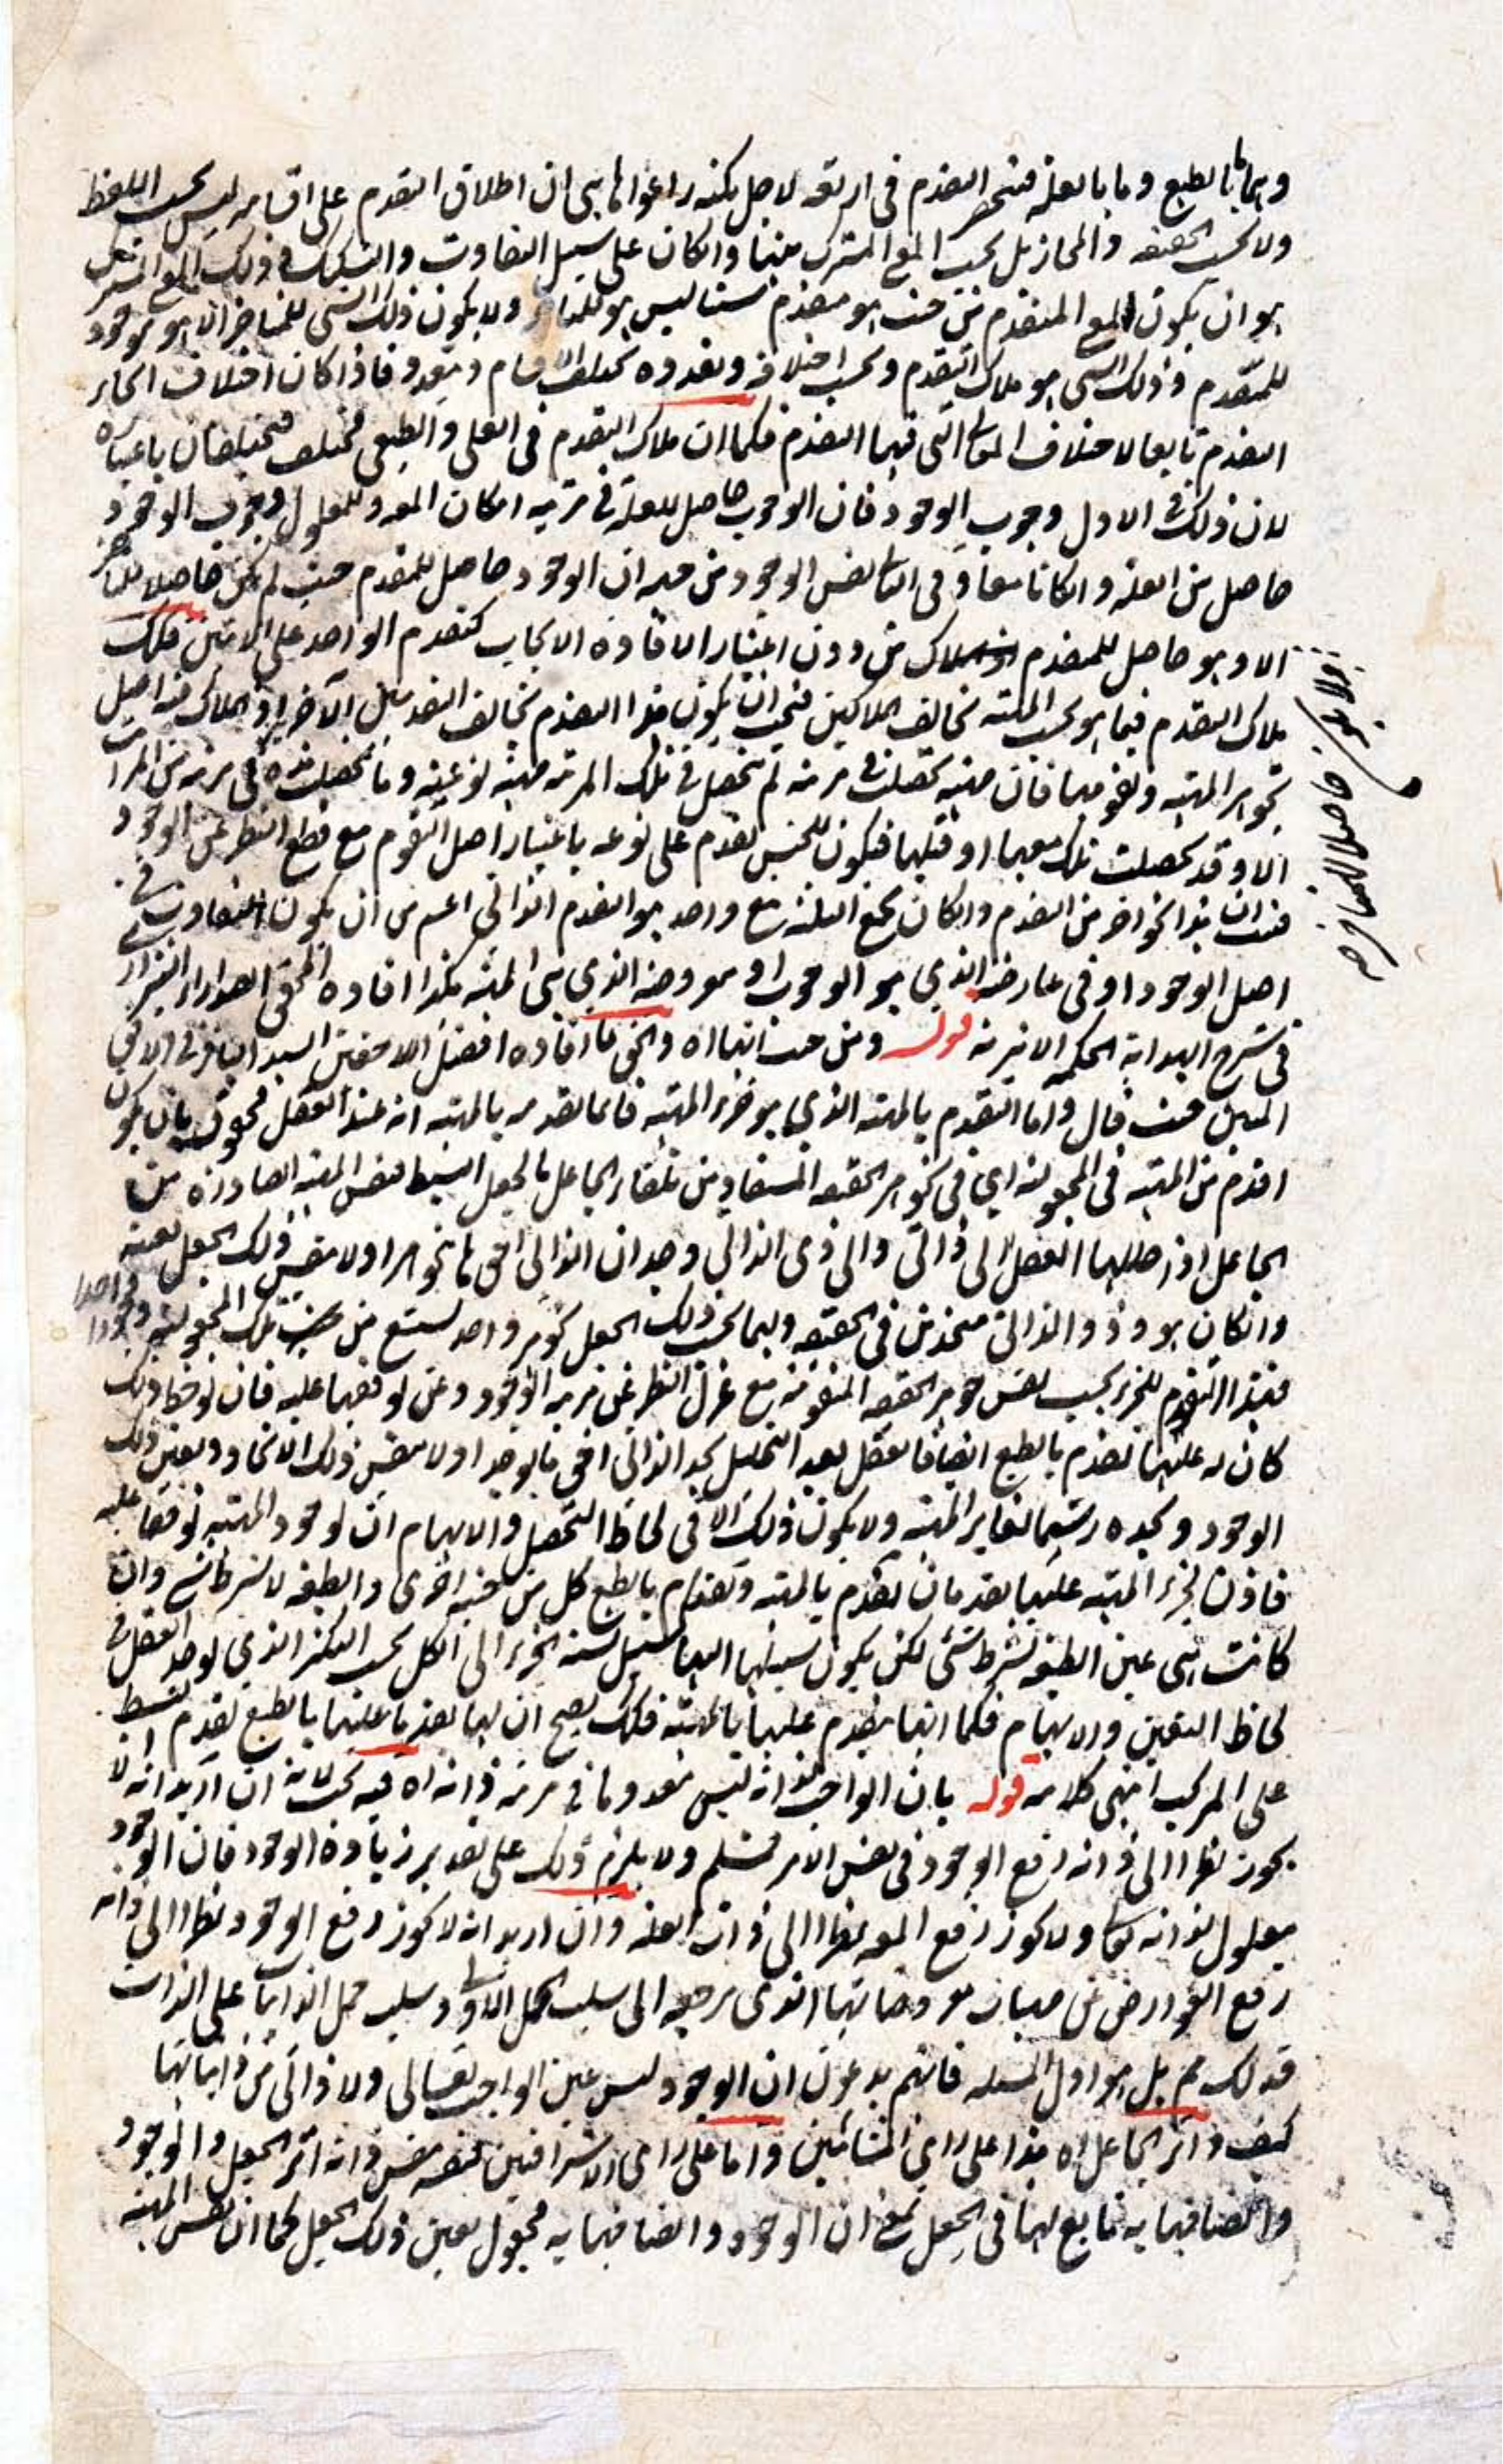 وهما ما بالطبع وما بالعلة فينحصر التقدم في اربعة لاجل انهم راعوا ان اطلاق التقدم على اقسامه ليس بحسب اللفظ
ولا بحسب الحقيقة والمجاز بل بحسب المعنى المشترك بينها وان كان على سبيل التفاوت والتشكيك وذلك المعنى المشترك
هو ان يكون للمتقدم من حيث هو متقدم شيئا ليس هو للمتاخر ولا يكون ذلك الشيء للمتاخر الا هو موجود
للمتقدم وذلك الشيء هو ملاك التقدم وبحسب اختلافه وتعدده يختلف الاقسام ويتعدد فاذا كان اختلاف انحاء
التقدم تابعا لاختلاف المعاني التي فيها التقدم فكما ان ملاك التقدم في العلي والطبعي مختلف فيختلفان باعتباره
لان ذلك في الاول وجوب الوجود فان الوجوب حاصل للعلة في مرتبة امكان المعلول وللمعلول وجوب الوجود
حاصل من العلة وان كانا معا وفي الثاني نفس الوجود من حيث ان الوجود حاصل للمتقدم حيث لم يكن حاصلا للمتاخر
الا وهو حاصل للمتقدم من دون اعتبار الافادة الايجاب كتقدم الواحد على الاثنين فكذلك
ملاك التقدم فيما هو بحسب المهية يخالف الملاكين فيجب ان يكون هذا التقدم يخالف التقدمين الآخرين اذ الملاك فيه اصل
تجوهر المهية وتقومها فان مهية تحصلت في مرتبة لم يتحصل في تلك المرتبة مهية نوعية وما تحصلت هذه في مرتبة من المراتب
الا وقد تحصلت تلك معها او قبلها فيكون للجنس تقدم على نوعه باعتبار اصل التقوم مع قطع النظر عن الوجود
فثبت ان هذا نحو اخر من التقدم وان كان يجمع الثلثة معنى واحد هو التقدم الذاتي اعم من ان يكون التفاوت في
اصل الوجود او في عارضه الذي هو الوجوب او معروضه الذي هي المهية هكذا افاده المحقق الصدر الشيرازي
في شرح الهداية الحكمة الاثيرية قوله ومن حيث انها اه والحق ما افاده افضل اللاحقين السيد الباقر في الافق
المبين حيث قال واما التقدم بالمهية الذي هو جزء المهية فانما تقدمه بالمهية انه عند العقل محقوق بان يكون
اقدم من المهية في المجعولية اي في تجوهر الحقيقة المستفاد من تلقاء الجاعل بالجعل البسيط لنفس المهية الصادرة من
الجاعل اذ حللها العقل الى ذاتي والى ذي الذاتي وجد ان الذاتي احق بالتجوهر اولا بنفس ذلك الجعل بعينه
وان كان هو وذو الذاتي متحدين في الحقيقة ولهما بحسب ذلك الجعل تجوهر واحد يستتبع من حيث تلك المجعولية وجودا واحدا
فهذا التقدم للجزء بحسب نفس جوهر الحقيقة المتقومة مع عزل النظر عن مرتبة الوجود وعن توقفها عليه فان لوحظ ذلك
كان له عليها تقدم بالطبع ايضا فالعقل بعد التحليل يجد الذاتي احق بالوجود اولا بنفس ذلك الاتحاد وبعين ذلك
الوجود ويجده ريثما يغاير المهية ولا يكون ذلك الا في لحاظ التحصل والابهام ان لوجود المهية توقفا عليه
فاذن لجزء المهية عليها تقدمان تقدم بالمهية وتقدم بالطبع كل من حيثية اخرى والطبيعة لا بشرط شيء وان
كانت هي عين الطبيعة بشرط شيء لكن يكون نسبتها اليها سبيل نسبة الجزء الى الكل بحسب التكثر الذي يوجد العقل في
لحاظ التعين والابهام فكما انها يتقدم عليها بالمهية فكذلك يصح ان لها تقدما عليها بالطبع تقدم البسيط
على المركب انتهى كلامه قوله بان الواجب انه ليس معدوما في مرتبة ذاته اه فيه بحث لانه ان اريد انه لا
يجوز نظرا الى ذاته رفع الوجود في نفس الامر فمسلم ولا يلزم ذلك على تقدير زيادة الوجود فان الوجود
معلول لذاته تعالى ولا يجوز رفع المعلول نظرا الى ذات العلة وان اريد انه لا يجوز رفع الوجود نظرا الى ذاته
رفع العوارض عن مهيات معروضاتها الذي مرجعه الى سلب الحمل الاولي وسلب حمل الذاتيات على الذات
فذلك مم بل هو اول المسئلة فانهم يدعون ان الوجود ليس عين الواجب تعالى ولا ذاتي من ذاتياتها
كيف واثر الجاعل اه هذا على راي المشائين واما على راي الاشراقيين فنفس ذاته اثر الجعل والوجود
واتصافها به تابع لها في الجعل بمعنى ان الوجود واتصافها به مجعول بعين ذلك الجعل كما ان نفس المهية
ولا يكون حاصلا للمتاخر صح